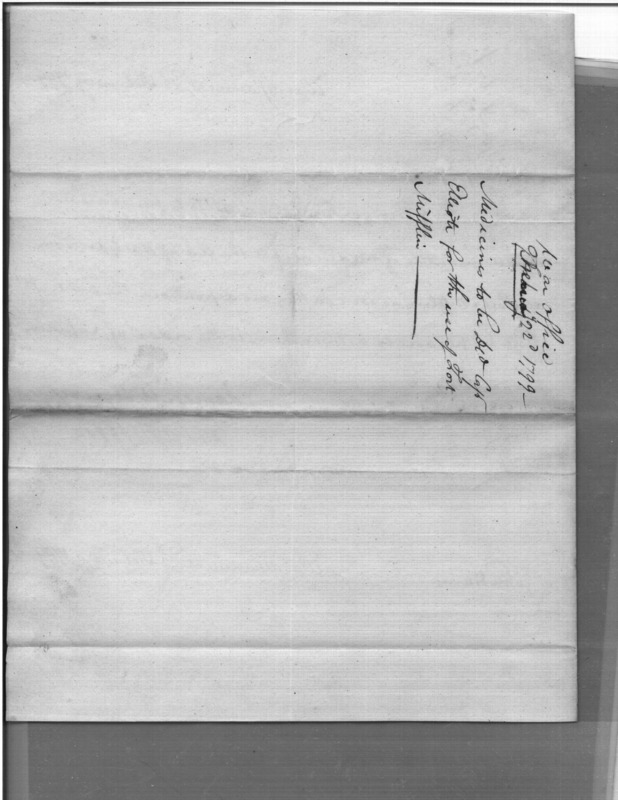 War office
22d 1799 —
Medicines to be Ded Capt
Elliott for the use of Fort
Mifflin —